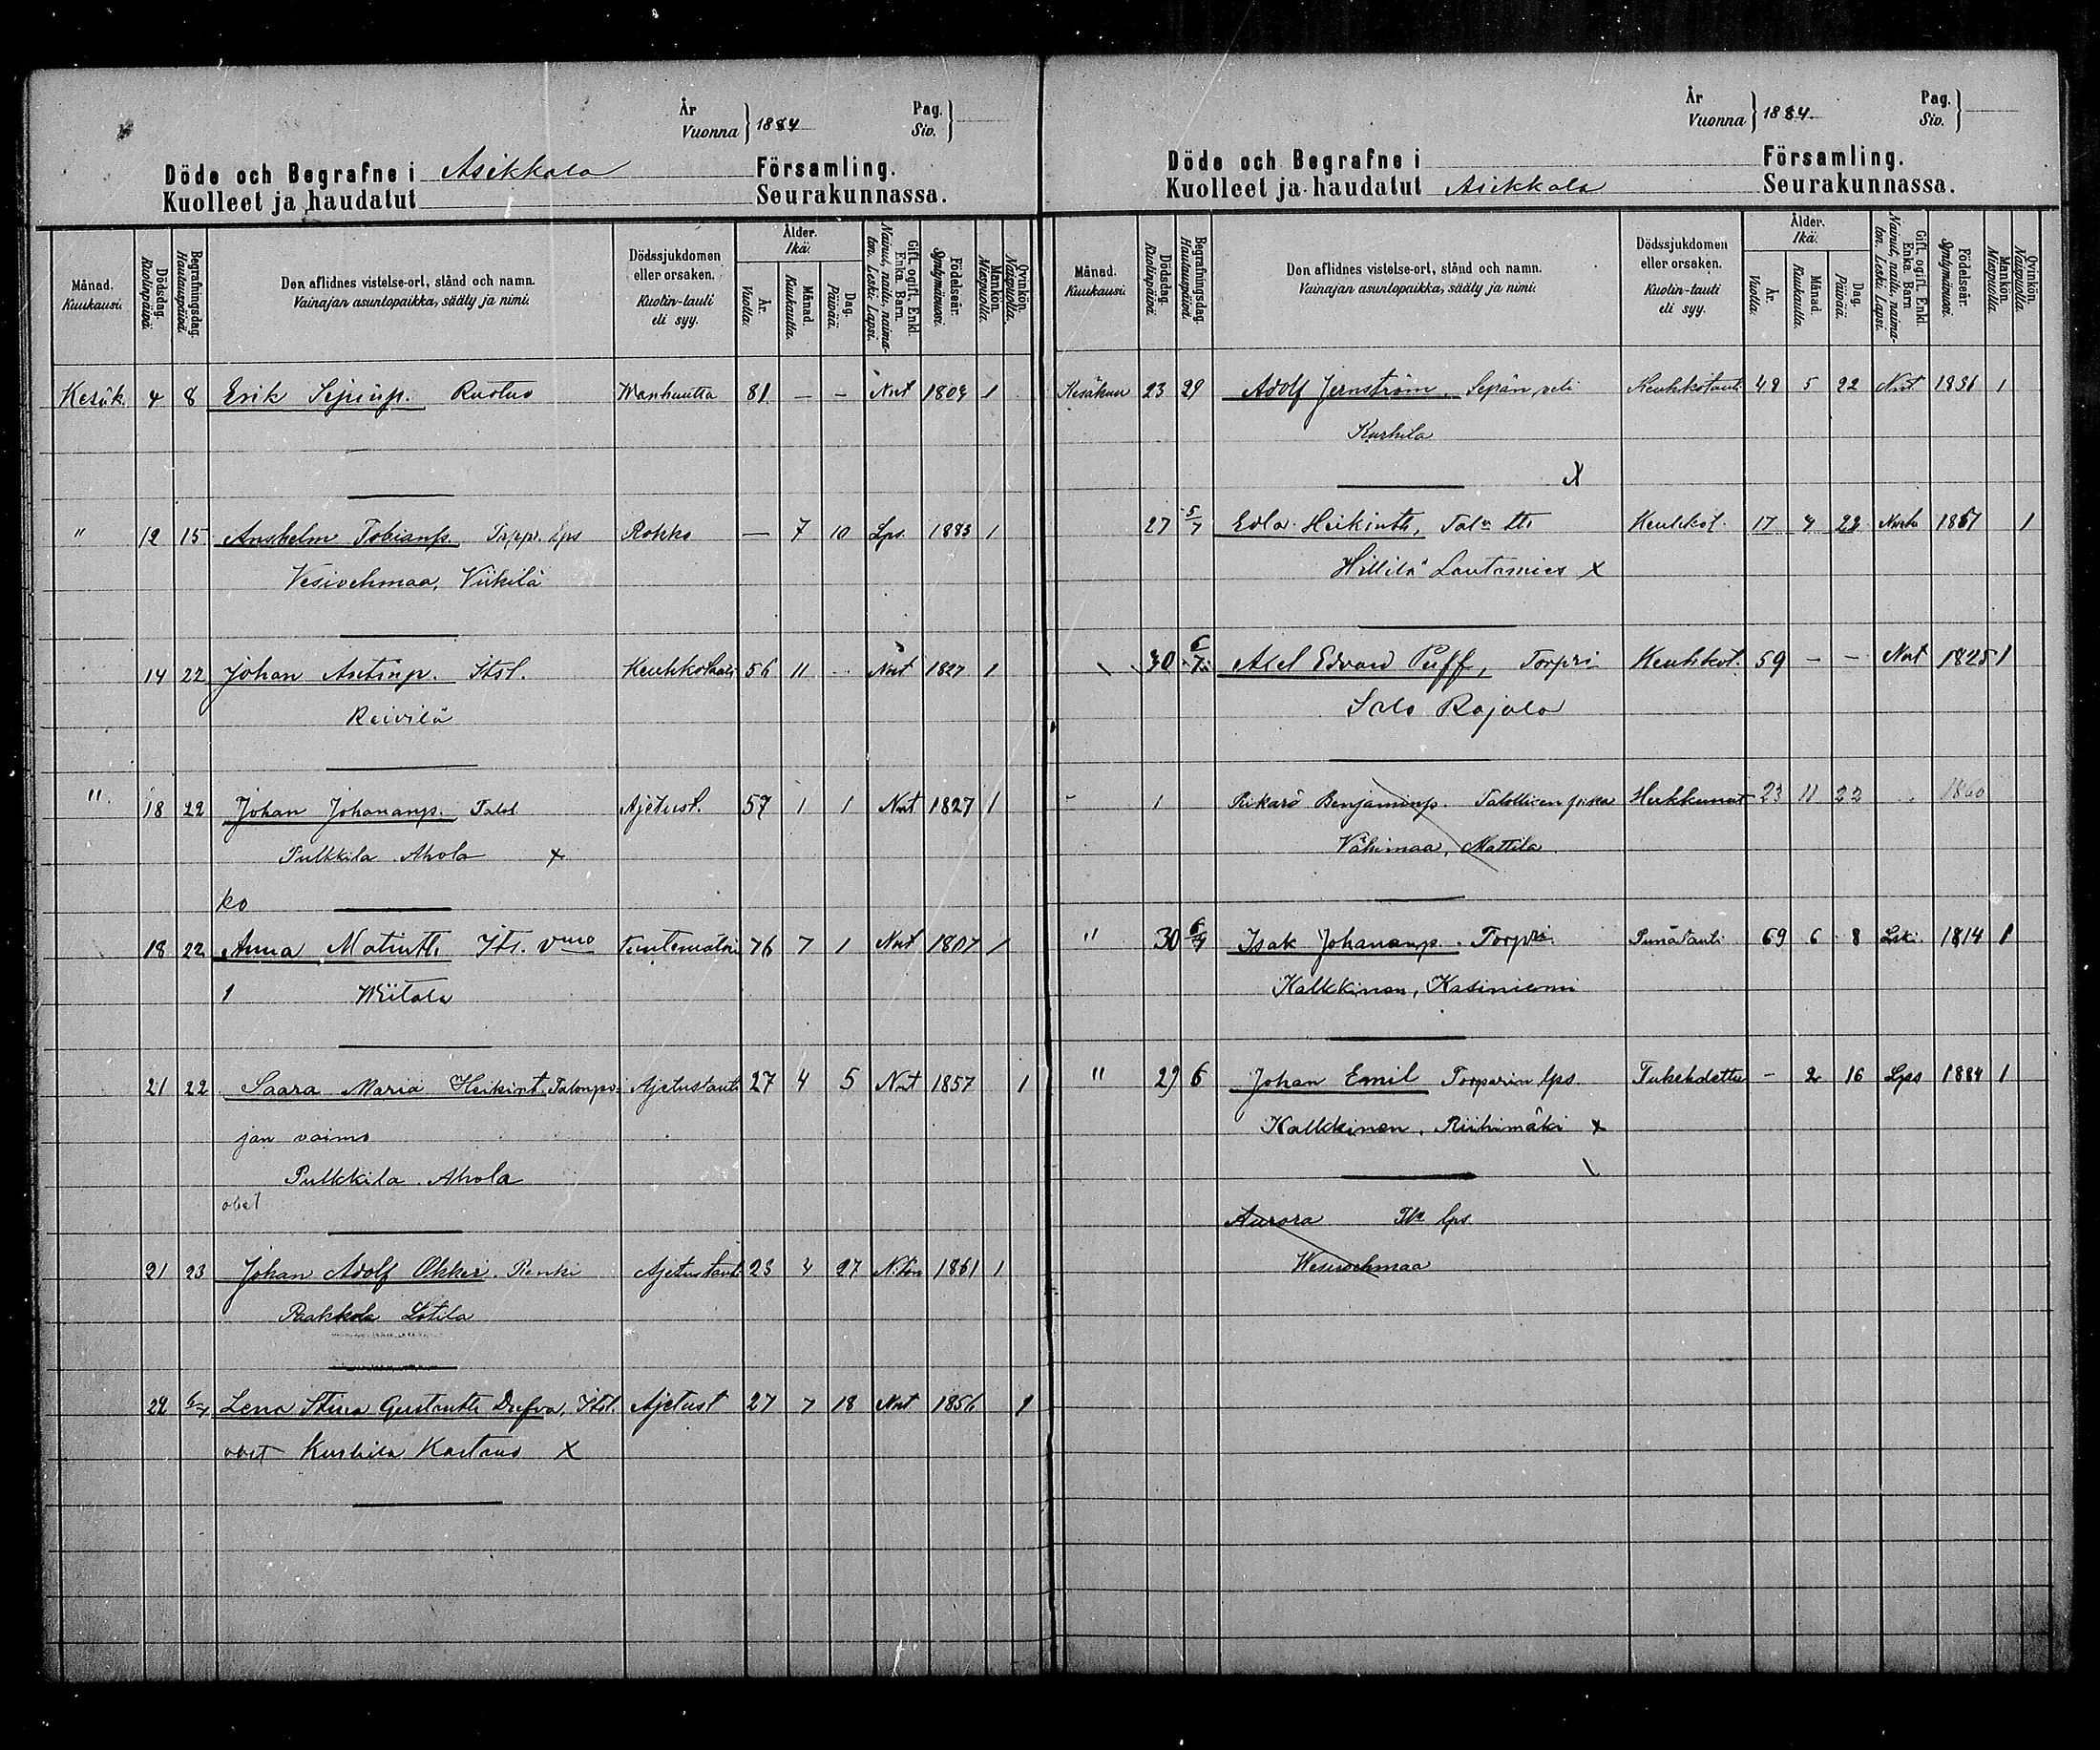 År
Vuonna } 1884
Pag.
Siv. }
Döde och Begrafne i Asikkala Församling.
Kuolleet ja haudatut Seurakunnassa.
Månad.
Kuukausi.
Dödsdag.
Kuolinpäivä.
Begrafningsdag.
Hautauspäivä.
Den aflidnes vistelse-ort, stånd och namn.
Vainajan asuntopaikka, sääty ja nimi.
Dödssjukdomen
eller orsaken.
Kuolin-tauti
eli syy.
Ålder.
Ikä.
År.
Vuotta.
Månad.
Kuukautta.
Dag.
Päivää.
Gift, ogift. Enkl.
Enka. Barn.
Nainut, naitu, naima-
ton. Leski. Lapsi.
Födelseår.
Syntymävuosi.
Mankön.
Miespuolia.
Qvinkön.
Naispuolia.
Kesäk. 4 8 Erik Sepinp. Ruotus Wanhuutta 81 — — Nut 1804 1
" 12 15 Anshelm Tobianp. Torpp. lps Rokko — 7 10 Lps. 1883 1
Vesivehmaa, Viikilä
14 22 Johan Antinp. Itsl. Keuhkotauti 56 11 Nut 1827 1
Reivilä
" 18 22 Johan Johananp. Talol Ajetust. 57 1 1 Nut 1827 1
Pulkkila Ahola x
ko
18 22 Anna Matintt. Itsl. vmo Tuntematoin 76 7 1 Nut 1807 1
1 Wiitala
21 22 Saara Maria Heikint. Talonpoi Ajetustauti 27 4 5 Nut 1857 1
jan vaimo
Pulkkila Ahola
obs 1
21 23 Johan Adolf Okker. Renki Ajetustauti 23 4 27 N.ton 1861 1
Paakkola Lotila
22 6/7 Lena Stina Gustavintt. Drufva, Itsl. Ajetust 27 7 18 Nut 1856 1
Kurhila Kartano X
År
Vuonna } 1884.
Pag.
Siv. }
Döde och Begrafne i Församling.
Kuolleet ja haudatut Asikkala Seurakunnassa.
Månad.
Kuukausi.
Dödsdag.
Kuolinpäivä.
Begrafningsdag.
Hautauspäivä.
Den aflidnes vistelse-ort, stånd och namn.
Vainajan asuntopaikka, sääty ja nimi.
Dödssjukdomen
eller orsaken.
Kuolin-tauti
eli syy.
Ålder.
Ikä.
År.
Vuotta.
Månad.
Kuukautta.
Dag.
Päivää.
Gift, ogift. Enkl.
Enka. Barn
Nainut, naitu, naima-
ton. Leski. Lapsi.
Födelseår.
Syntymävuosi.
Mankön.
Miespuolia.
Qvinkön.
Naispuolia.
Kesäkuu 23 29 Adolf Jernström, Sepän veli Keuhkotauti 48 5 22 Nut 1836 1
Kurhila
X
27 5/7 Edla Heikintt, Tal:n tt. Keuhkot. 17 4 23 1867 1
Hillilä Lautamies X
30 6/7 Axel Edvard Puff, Torpri Keuhkot. 59 — — Nut 1825 1
Salo Rajala
1 Rikard Benjaminp. Talollisen poika Hukkunut 23 11 22 1860
Vähimaa, Mattila
" 30 6/7 Isak Johananp. Torpri. Punatauti 69 6 8 Lski. 1814 1
Kalkkinen, Kasiniemi
" 29 6 Johan Emil Torparin lps Tukehdettu - 2 16 Lps 1884 1
Kalkkinen, Riihimäki x
Aurora lps
Wesivehmaa